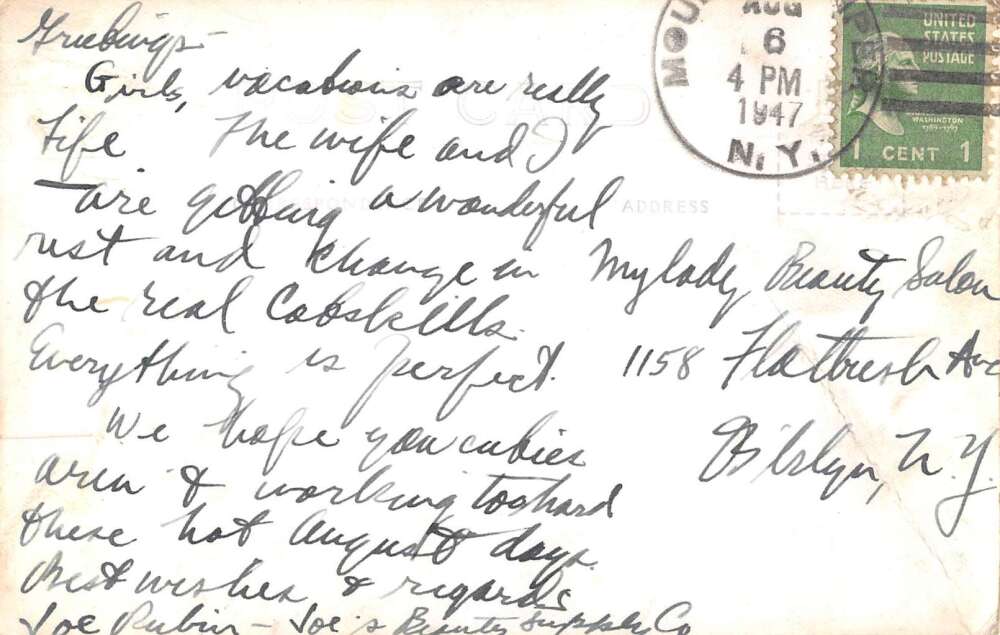 Greetings -
Girls, vacations are really
life. The wife and I
are getting a wonderful
rest and change in
the real Catskills.
Everything is perfect.
We hope you cuties
aren't working too hard
these hot August days.
Best wishes & regards
Joe Rubin - Joe's Beauty Supply Co
AUG
6
4 PM
1947
N.Y.
UNITED
STATES
POSTAGE
WASHINGTON
1 CENT 1
POST CARD
ADDRESS
Mylady Beauty Salon
1158 Flatbush Ave
Bklyn, N.Y.